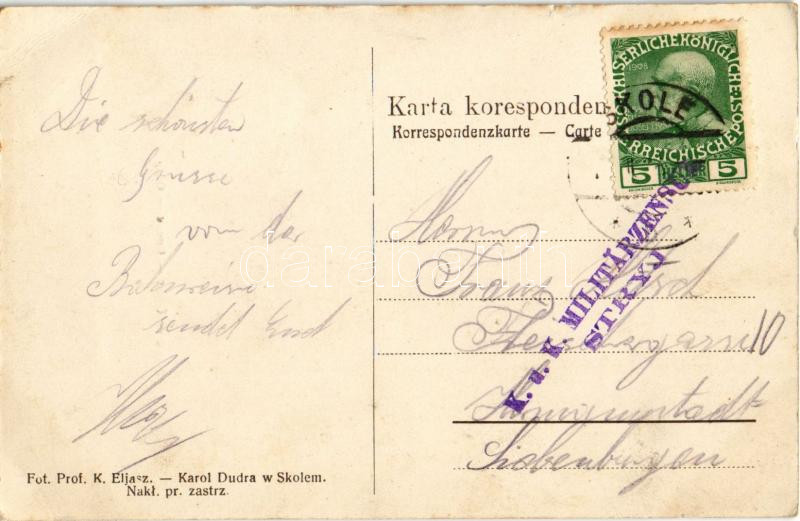 Die schönsten
Grüsse
von der
sendet Euch
Fot. Prof. K. Eljasz. — Karol Dudra w Skolem.
Nakł. pr. zastrz.
Karta koresponden
Korrespondenzkarte — Carte
KAISERLICHE KÖNIGLICHE
ÖSTERREICHISCHE POST
1908
5 HELLER 5
SKOLE
K. u. K. MILITÄRZENSUR
STRYJ
Herrn
Franz
10
Hermannstadt
Siebenbürgen
darabanth.com